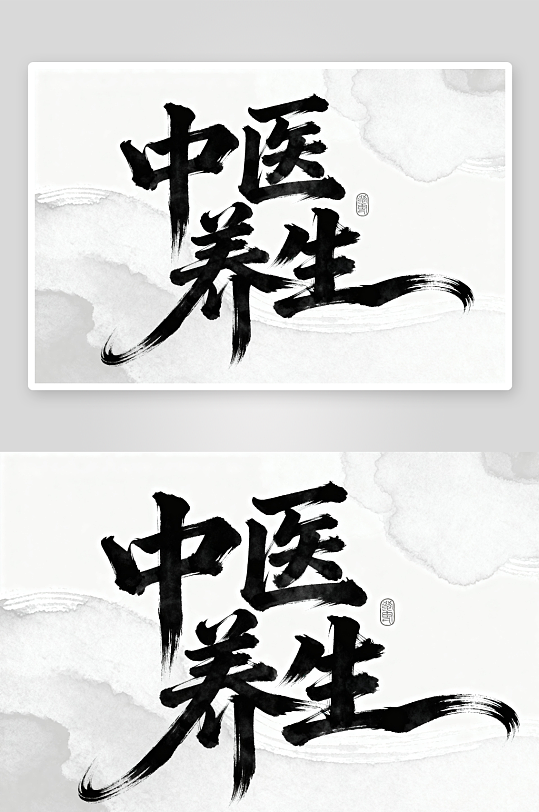 中医
养生
中医
养生